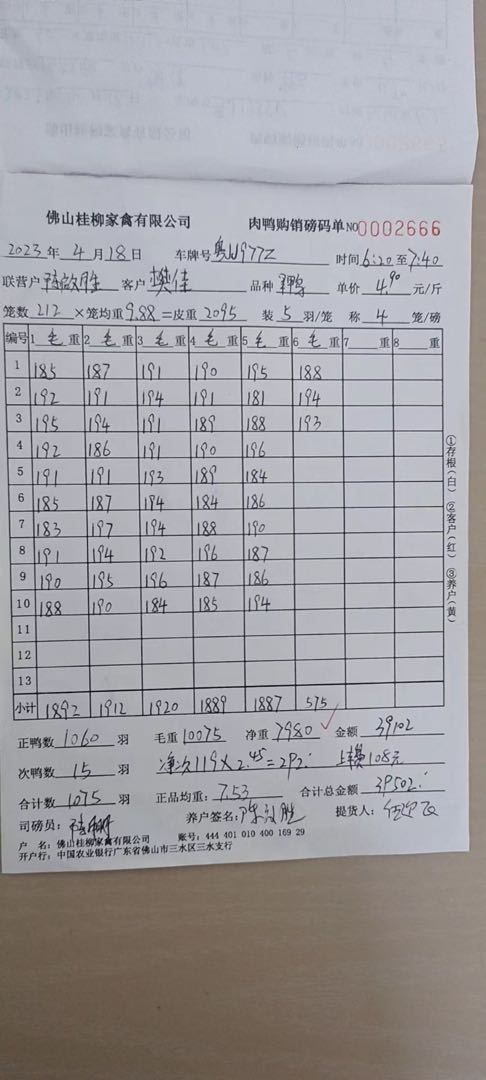 佛山桂柳家禽有限公司 肉鸭购销磅码单 NO 0002666
2023年 4月18日 车牌号 粤W977Z 时间 6:20 至 7:40
联营户 客户 樊佳 品种 单价 4.90 元/斤
笼数 212 ×笼均重 9.88 =皮重 2095 装 5 羽/笼 称 4 笼/磅
编号 1 毛 重 2 毛 重 3 毛 重 4 毛 重 5 毛 重 6 毛 重 7 重 8 重
1 185 187 191 190 195 188
2 192 191 194 191 181 194
3 195 194 191 189 188 193
4 192 186 191 190 196
5 191 191 193 189 184
6 185 187 194 184 186
7 183 197 194 188 190
8 191 194 192 196 187
9 190 195 196 187 186
10 188 190 184 185 194
11
12
13
小计 1892 1912 1920 1889 1887 575
正鸭数 1060 羽 毛重 10075 净重 7980 金额 39102
次鸭数 15 羽 净次119×2.45=292 108元
合计数 1075 羽 正品均重: 7.53 合计总金额 39502
司磅员: 养户签名: 提货人:
户 名: 佛山桂柳家禽有限公司 账号: 444 401 010 400 169 29
开户行: 中国农业银行广东省佛山市三水区三水支行
①存根(白) ②客户(红) ③养户(黄)